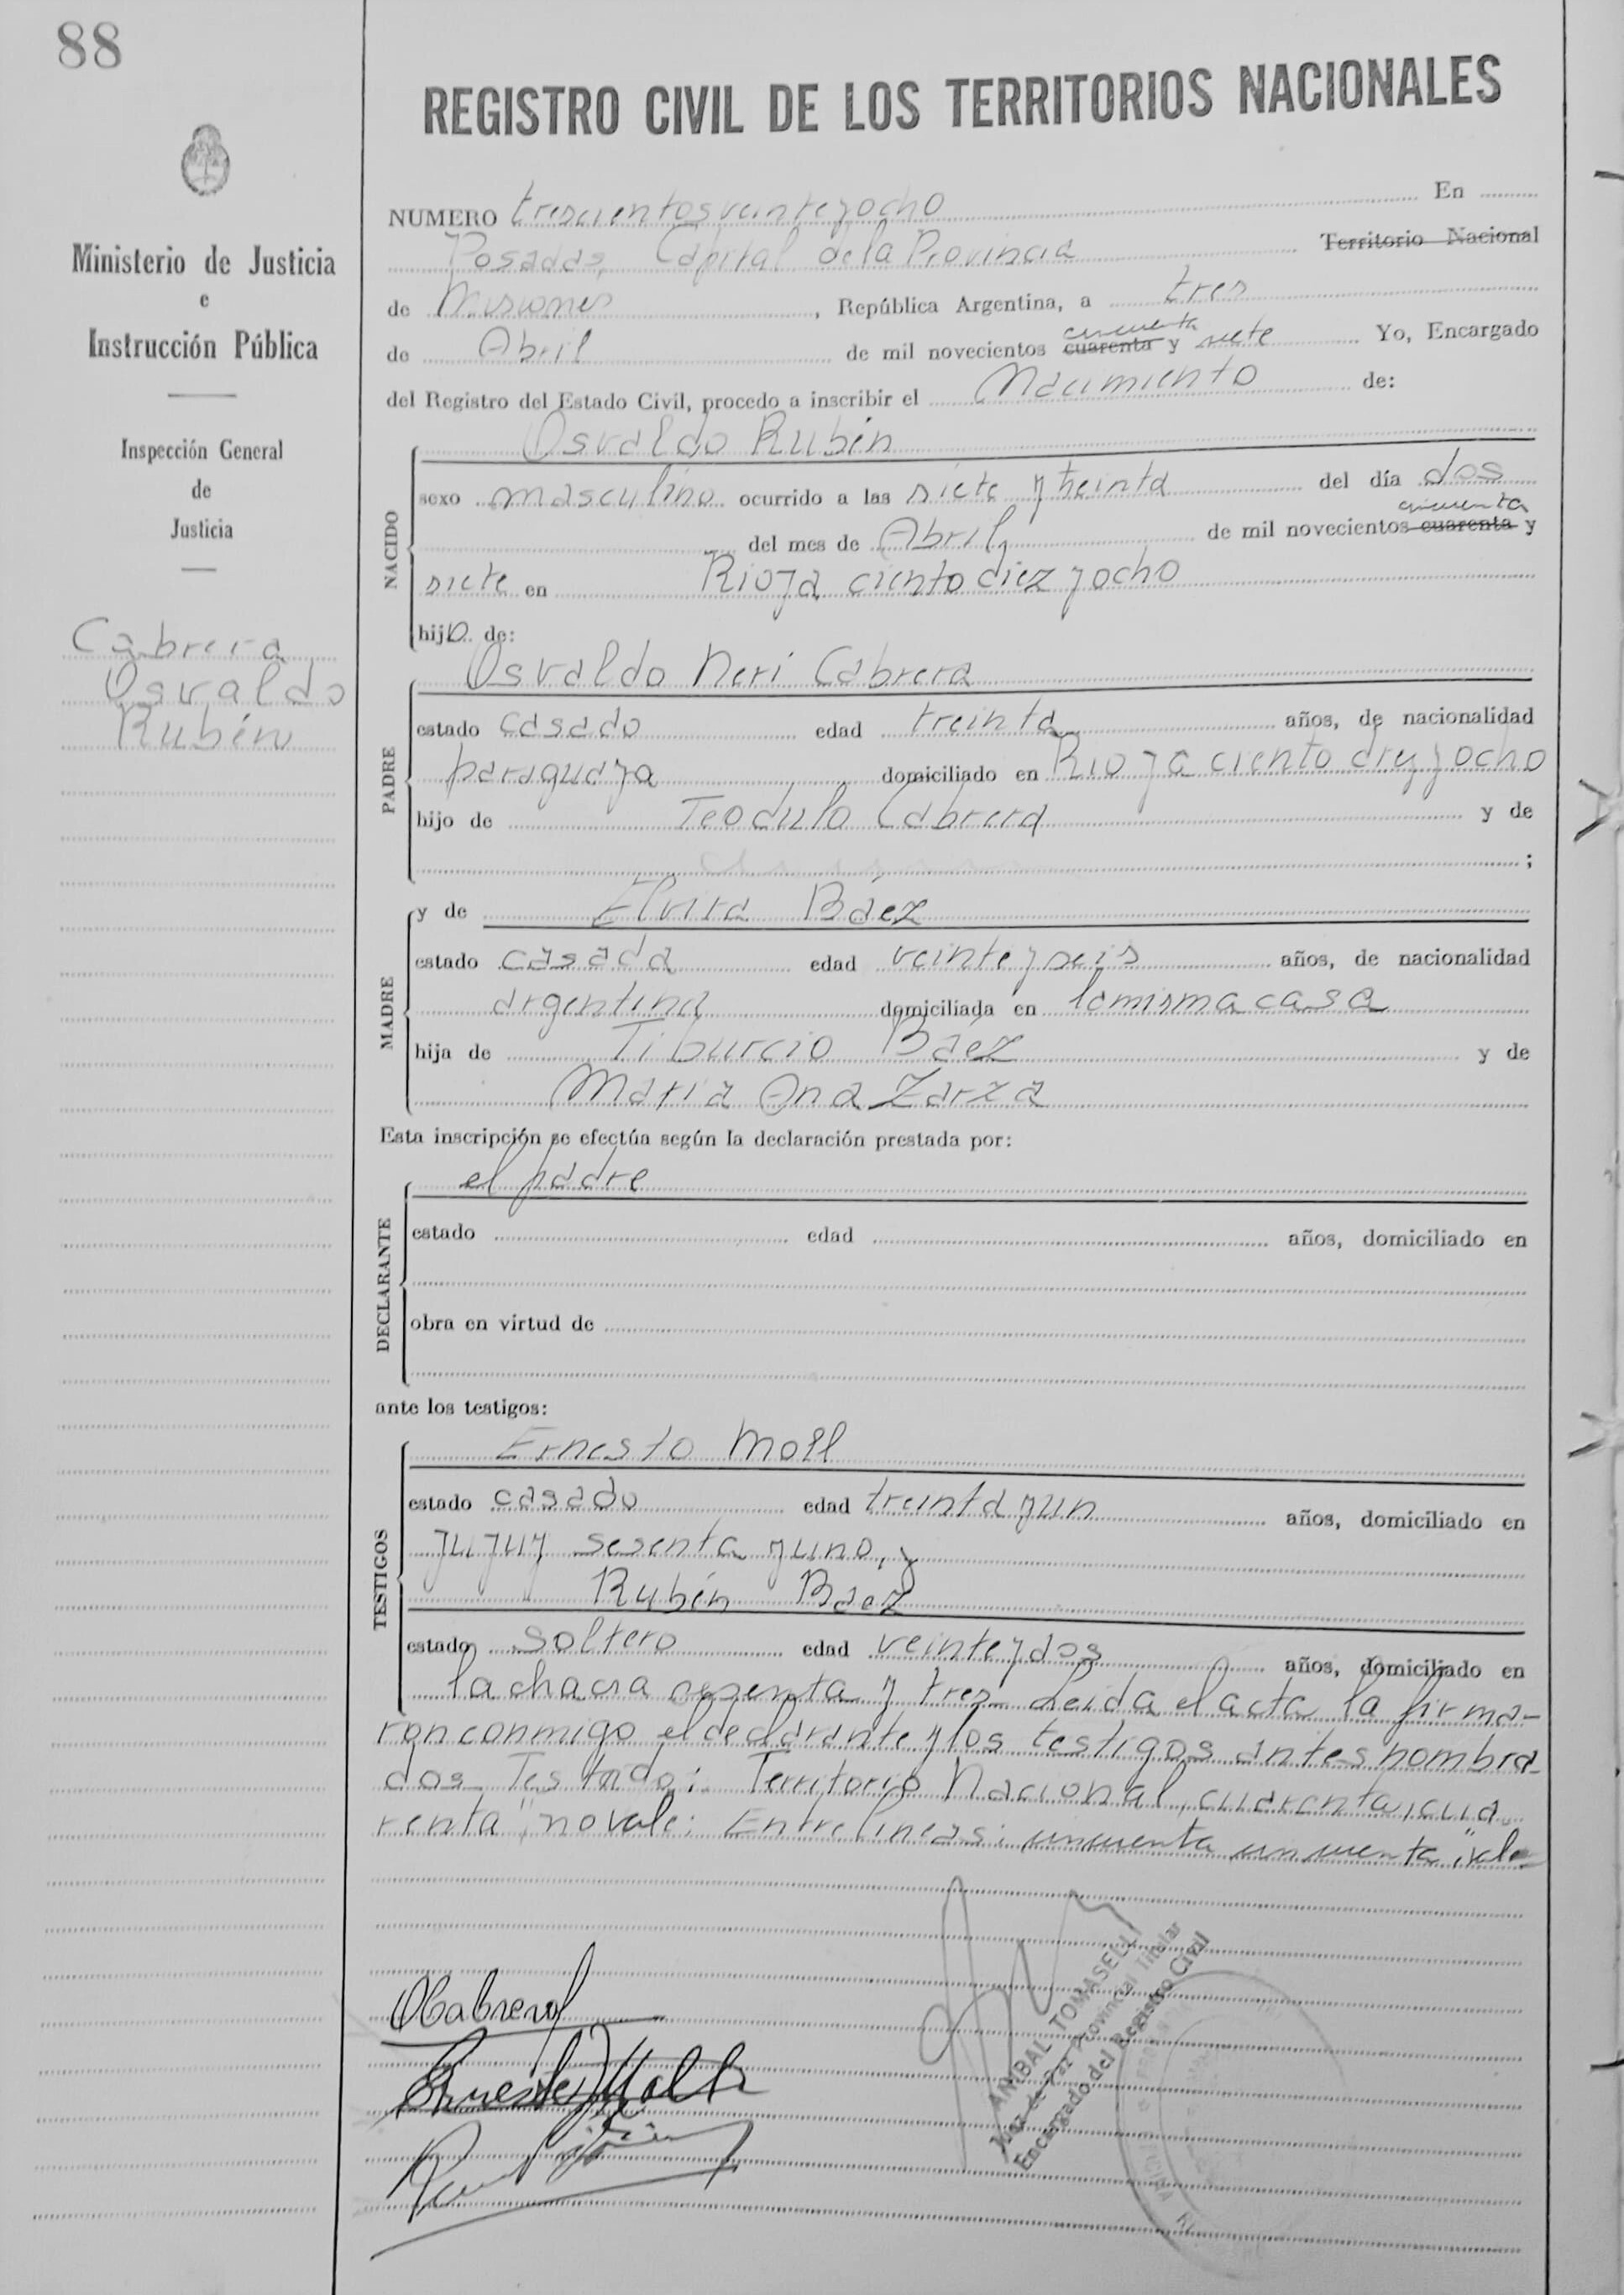 88
REGISTRO CIVIL DE LOS TERRITORIOS NACIONALES
Ministerio de Justicia
e
Instrucción Pública
Inspección General
de
Justicia
Cabrera
Osvaldo
Rubén
NUMERO trescientos veinte y ocho En
Posadas, Capital de la Provincia Territorio Nacional
de Misiones, República Argentina, a tres
cincuenta
de Abril de mil novecientos cuarenta y siete Yo, Encargado
del Registro del Estado Civil, procedo a inscribir el Nacimiento de:
NACIDO
Osvaldo Rubén
sexo masculino ocurrido a las siete y treinta del día dos
cincuenta
del mes de Abril, de mil novecientos cuarenta y
siete en Rioja ciento diez y ocho
hijo de:
PADRE
Osvaldo Neri Cabrera
estado casado edad treinta años, de nacionalidad
paraguaya domiciliado en Rioja ciento diez y ocho
hijo de Teodulo Cabrera y de
;
MADRE
y de Elvira Báez
estado casada edad veinte y seis años, de nacionalidad
argentina domiciliada en la misma casa
hija de Tiburcio Báez y de
Maria Ana Zarza
Esta inscripción se efectúa según la declaración prestada por:
DECLARANTE
el padre
estado edad años, domiciliado en
obra en virtud de
ante los testigos:
TESTIGOS
Ernesto Moll
estado casado edad treinta y un años, domiciliado en
Jujuy sesenta y uno, y
Rubén Baez
estado soltero edad veinte y dos años, domiciliado en
la chacra sesenta y tres Leida el acta la firma-
ron conmigo el declarante y los testigos antes nombra-
dos Testado: Territorio Nacional, cuarenta, cua
renta" no vale: Entre lineas: cincuenta cincuenta" vale
OCabrera
Ernesto Moll
ANIBAL TOMASELLI
Juez de Paz Provincial Titular
Encargado del Registro Civil